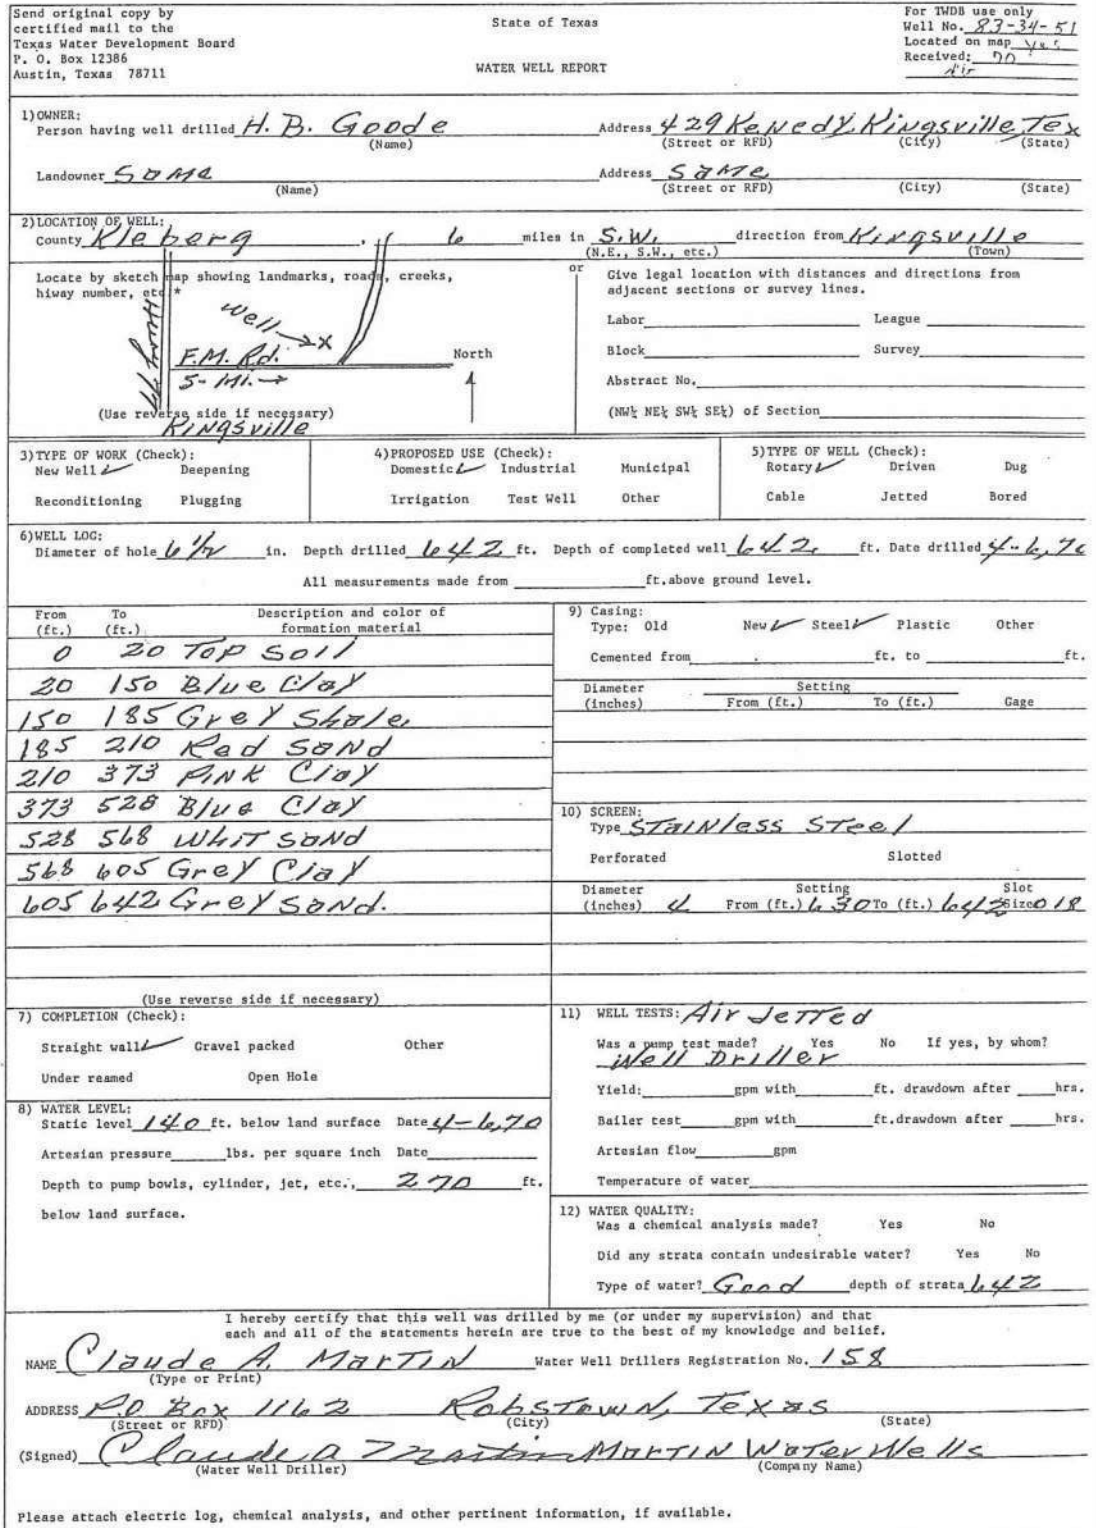 Send original copy by
certified mail to the
Texas Water Development Board
P. O. Box 12386
Austin, Texas 78711
State of Texas
WATER WELL REPORT
For TWDB use only
Well No. 83-34-51
Located on map yes
Received: 70
1) OWNER:
Person having well drilled H. B. Goode Address 429 Kenedy Kingsville, Tex
(Name) (Street or RFD) (City) (State)
Landowner Same Address Same
(Name) (Street or RFD) (City) (State)
2) LOCATION OF WELL:
County Kleberg , 6 miles in S.W. direction from Kingsville
(N.E., S.W., etc.) (Town)
Locate by sketch map showing landmarks, roads, creeks,
hiway number, etc.*
Well
X
F.M. Rd.
5- Mi.
North
(Use reverse side if necessary)
Kingsville
or
Give legal location with distances and directions from
adjacent sections or survey lines.
Labor League
Block Survey
Abstract No.
(NW¼ NE¼ SW¼ SE¼) of Section
3) TYPE OF WORK (Check):
New Well ✓ Deepening
Reconditioning Plugging
4) PROPOSED USE (Check):
Domestic ✓ Industrial Municipal
Irrigation Test Well Other
5) TYPE OF WELL (Check):
Rotary ✓ Driven Dug
Cable Jetted Bored
6) WELL LOG:
Diameter of hole 6 1/2 in. Depth drilled 642 ft. Depth of completed well 642 ft. Date drilled 4-6,70
All measurements made from ft. above ground level.
From To Description and color of
(ft.) (ft.) formation material
0 20 Top Soil
20 150 Blue Clay
150 185 Grey Shale
185 210 Red Sand
210 373 Pink Clay
373 528 Blue Clay
528 568 Whit Sand
568 605 Grey Clay
605 642 Grey Sand.
(Use reverse side if necessary)
9) Casing:
Type: Old New ✓ Steel ✓ Plastic Other
Cemented from ft. to ft.
Diameter Setting
(inches) From (ft.) To (ft.) Gage
10) SCREEN:
Type Stainless Steel
Perforated Slotted
Diameter Setting Slot
(inches) 4 From (ft.) 630 To (ft.) 642 Size 018
7) COMPLETION (Check):
Straight wall ✓ Gravel packed Other
Under reamed Open Hole
8) WATER LEVEL:
Static level 140 ft. below land surface Date 4-6,70
Artesian pressure lbs. per square inch Date
Depth to pump bowls, cylinder, jet, etc., 270 ft.
below land surface.
11) WELL TESTS: Air Jetted
Was a pump test made? Yes No If yes, by whom?
Well Driller
Yield: gpm with ft. drawdown after hrs.
Bailer test gpm with ft. drawdown after hrs.
Artesian flow gpm
Temperature of water
12) WATER QUALITY:
Was a chemical analysis made? Yes No
Did any strata contain undesirable water? Yes No
Type of water? Good depth of strata 642
I hereby certify that this well was drilled by me (or under my supervision) and that
each and all of the statements herein are true to the best of my knowledge and belief.
NAME Claude A. Martin Water Well Drillers Registration No. 158
(Type or Print)
ADDRESS P.O Box 1162 Robstown, Texas
(Street or RFD) (City) (State)
(Signed) Claude A Martin Martin Water Wells
(Water Well Driller) (Company Name)
Please attach electric log, chemical analysis, and other pertinent information, if available.